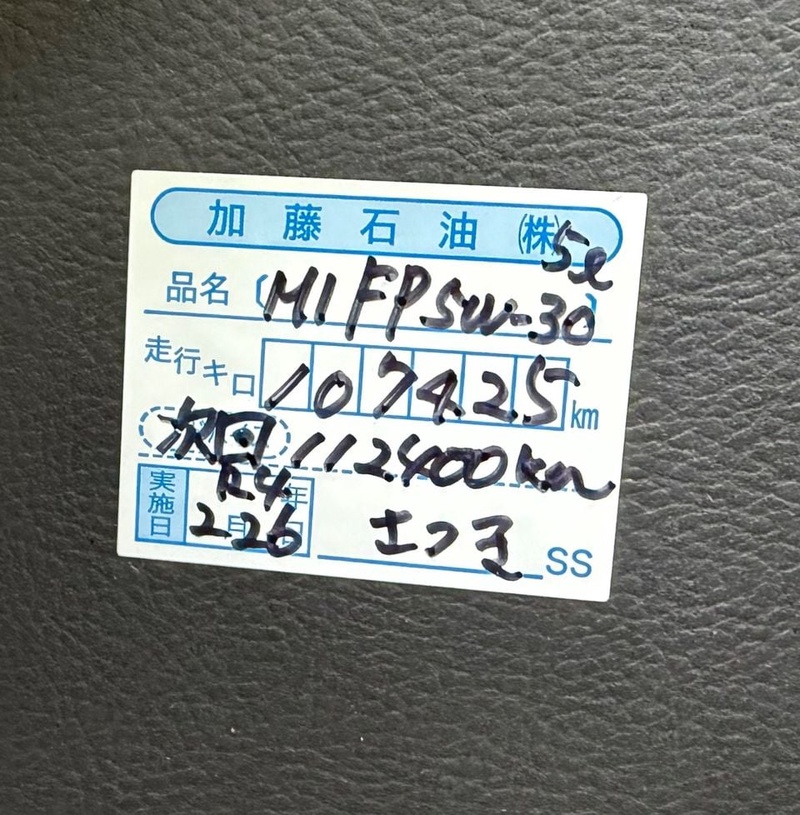 加藤石油(株)
5ℓ
品名 M1 FP 5W-30
走行キロ 107425 km
次回 112400km
実施日 R4年 2月26日
さつき SS